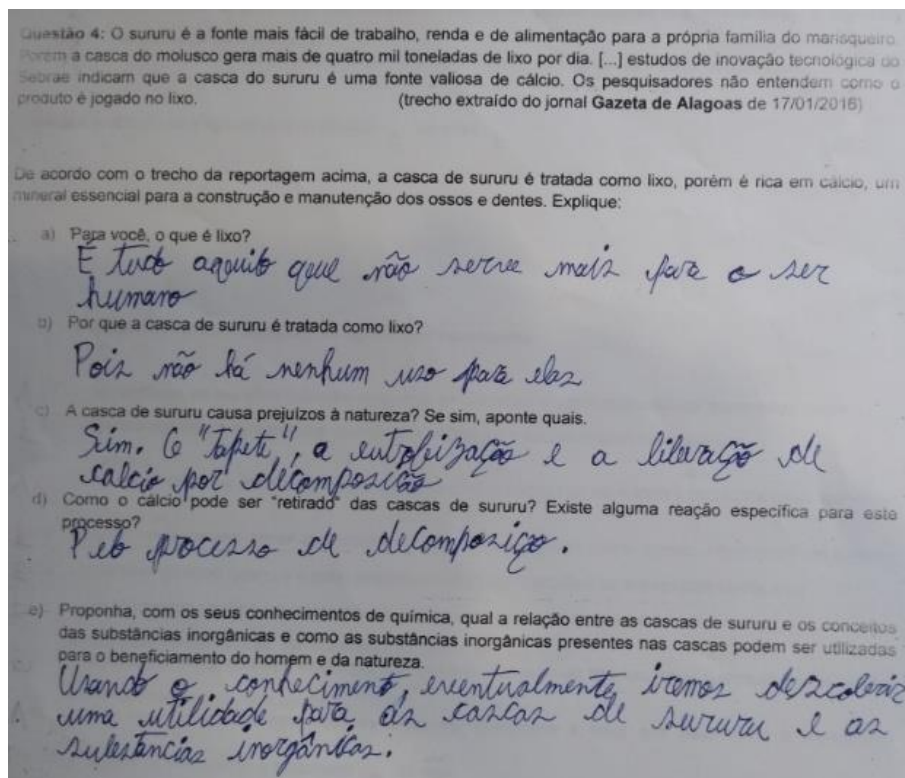 Questão 4: O sururu é a fonte mais fácil de trabalho, renda e de alimentação para a própria família do marisqueiro.
Porém a casca do molusco gera mais de quatro mil toneladas de lixo por dia. [...] estudos de inovação tecnológica do
Sebrae indicam que a casca do sururu é uma fonte valiosa de cálcio. Os pesquisadores não entendem como o
produto é jogado no lixo. (trecho extraído do jornal Gazeta de Alagoas de 17/01/2016)
De acordo com o trecho da reportagem acima, a casca de sururu é tratada como lixo, porém é rica em cálcio, um
mineral essencial para a construção e manutenção dos ossos e dentes. Explique:
a) Para você, o que é lixo?
É tudo aquilo que não serve mais para o ser
humano
b) Por que a casca de sururu é tratada como lixo?
Pois não há nenhum uso para elas
c) A casca de sururu causa prejuízos à natureza? Se sim, aponte quais.
Sim. O "tapete", a eutrofização e a liberação de
calcio por decomposição
d) Como o cálcio pode ser "retirado" das cascas de sururu? Existe alguma reação específica para este
processo?
Pelo processo de decomposição.
e) Proponha, com os seus conhecimentos de química, qual a relação entre as cascas de sururu e os conceitos
das substâncias inorgânicas e como as substâncias inorgânicas presentes nas cascas podem ser utilizadas
para o beneficiamento do homem e da natureza.
Usando o conhecimento, eventualmente iremos descobrir
uma utilidade para as cascas de sururu e as
substâncias inorgânicas.